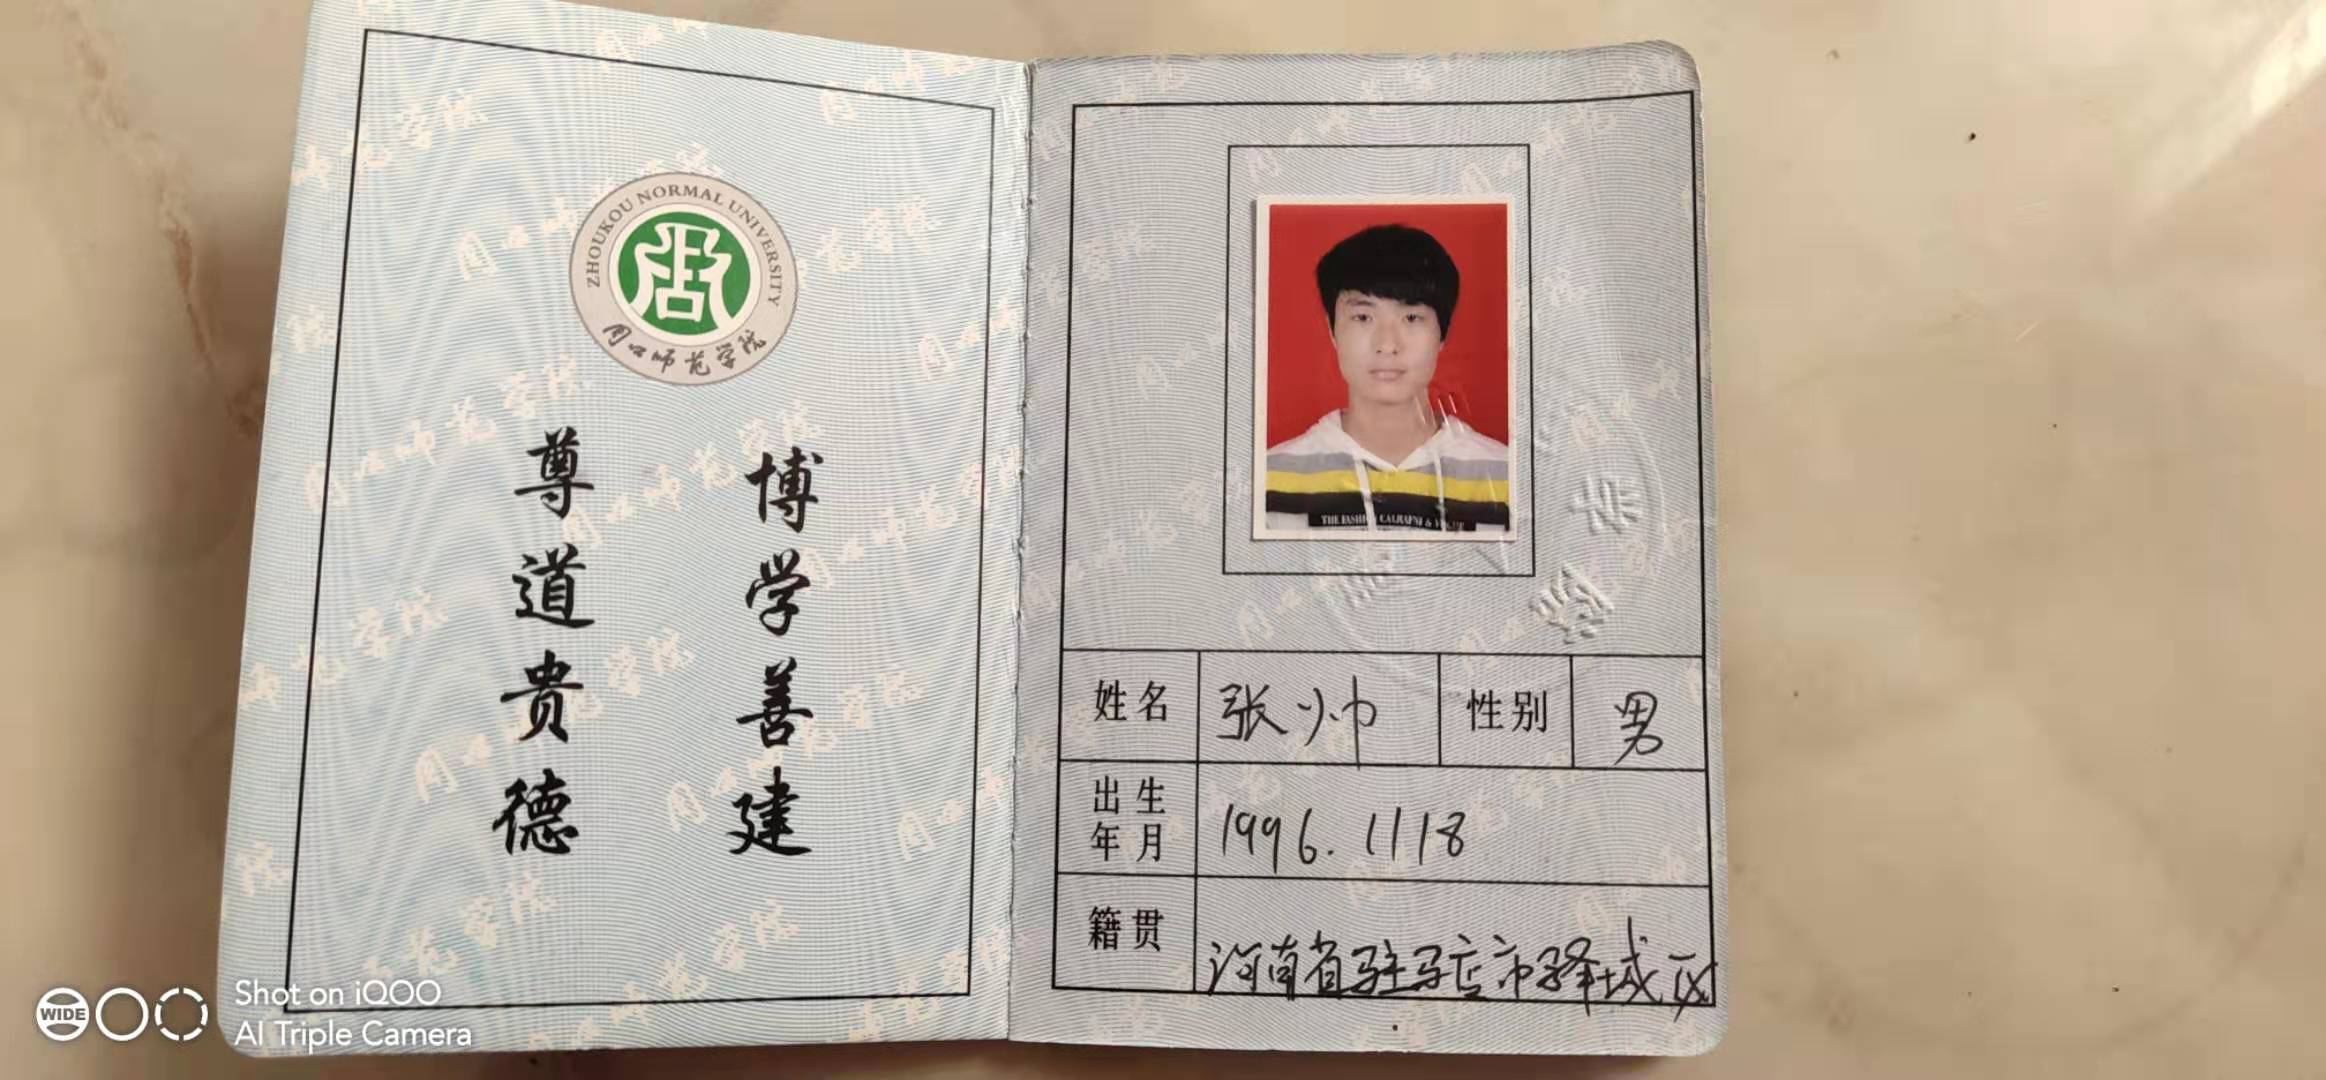 ZHOUKOU NORMAL UNIVERSITY
周口师范学院
博学善建
尊道贵德
THE FASHION CALRAFNI &
姓名 张帅 性别 男
出生年月 1996.1118
籍贯 河南省驻马店市驿城区
Shot on iQOO
WIDE
AI Triple Camera